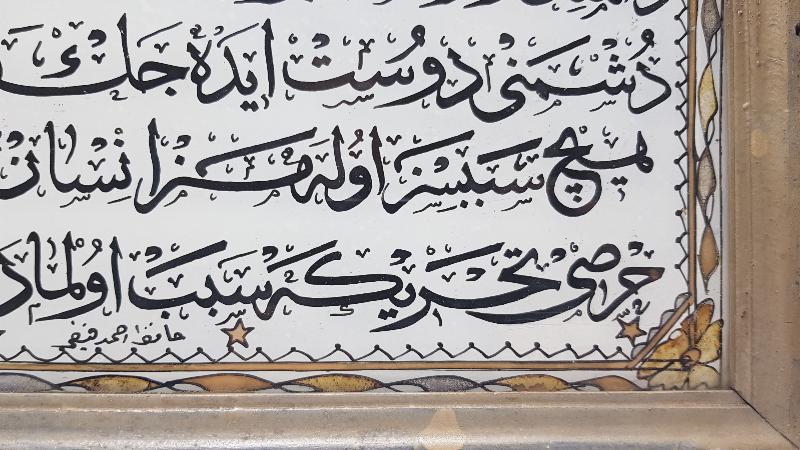 دشمنى دوست ايده جك
هيچ سببسز اوله مز انسان
حرصى تحريكه سبب اولماد
حافظ احمد فيضى